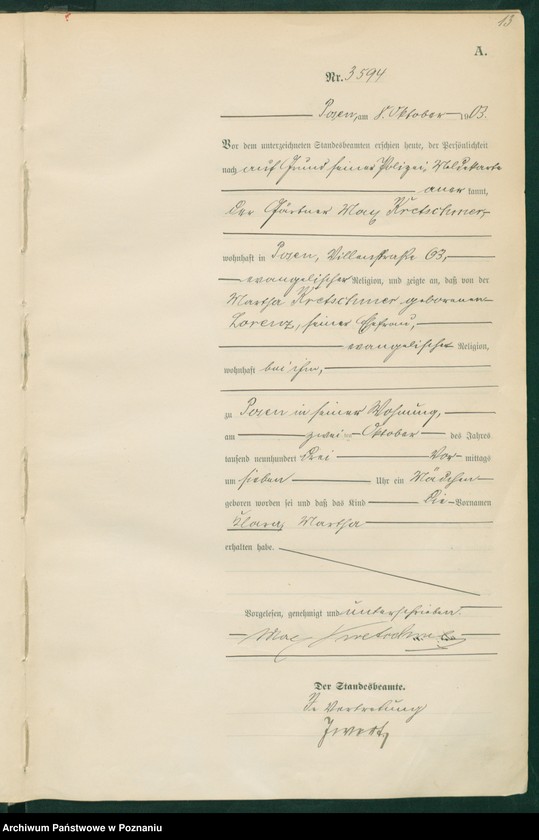 13
A.
Nr. 3594
Posen, am 8. Oktober 1903.
Vor dem unterzeichneten Standesbeamten erschien heute, der Persönlichkeit
nach auf Grund seiner Polizei, Meldekarte
anerkannt,
der Gärtner Max Kretschmer,
wohnhaft in Posen, Villenstraße 63,
evangelischer Religion, und zeigte an, daß von der
Martha Kretschmer geborenen
Lorenz, seiner Ehefrau,
evangelischer Religion,
wohnhaft bei ihm,
zu Posen in seiner Wohnung,
am zwei ten Oktober des Jahres
tausend neunhundert drei Vor mittags
um sieben Uhr ein Mädchen
geboren worden sei und daß das Kind die Vornamen
Klara Martha
erhalten habe.
Vorgelesen, genehmigt und unterschrieben.
Max Kretschmer
Der Standesbeamte.
In Vertretung
Archiwum Państwowe w Poznaniu